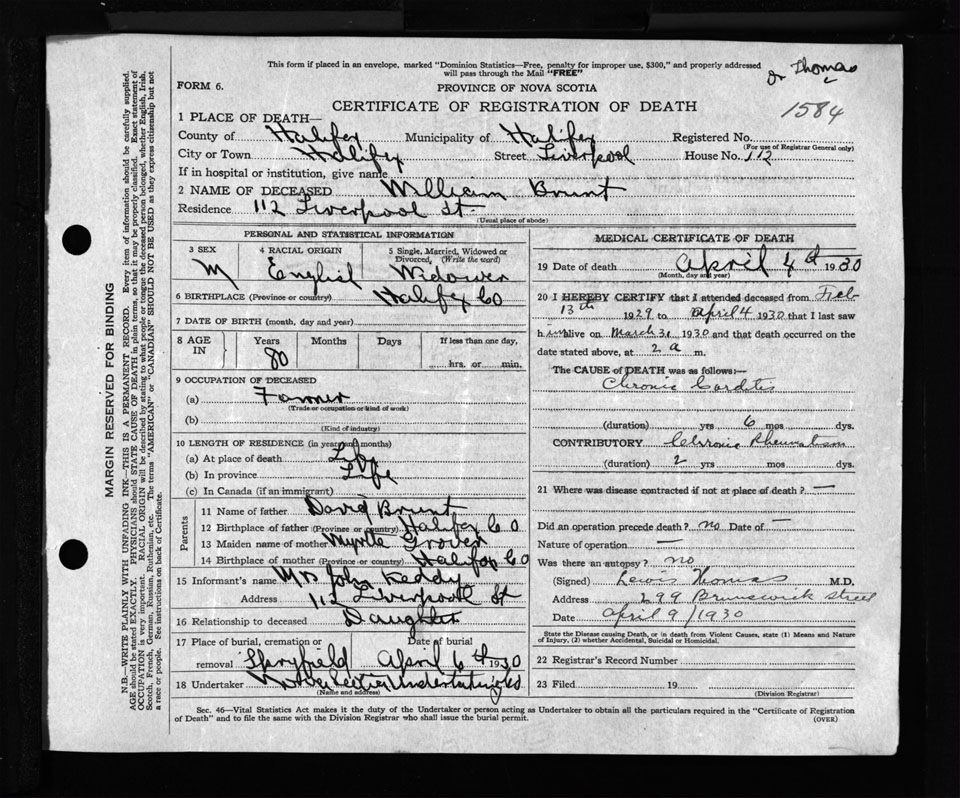 This form if placed in an envelope, marked "Dominion Statistics—Free, penalty for improper use, $300," and properly addressed
will pass through the Mail "FREE"
Dr Thomas
FORM 6.
PROVINCE OF NOVA SCOTIA
1584
CERTIFICATE OF REGISTRATION OF DEATH
1 PLACE OF DEATH—
County of Halifax Municipality of Halifax Registered No.
(For use of Registrar General only)
City or Town Halifax Street Liverpool House No. 112
If in hospital or institution, give name
2 NAME OF DECEASED William Brunt
Residence 112 Liverpool St.
(Usual place of abode)
PERSONAL AND STATISTICAL INFORMATION
3 SEX 4 RACIAL ORIGIN 5 Single, Married, Widowed or
Divorced, (Write the word)
M English Widower
6 BIRTHPLACE (Province or country) Halifax Co
7 DATE OF BIRTH (month, day and year)
8 AGE IN Years Months Days If less than one day,
80 hrs. or min.
9 OCCUPATION OF DECEASED
(a) Farmer
(Trade or occupation or kind of work)
(b)
(Kind of industry)
10 LENGTH OF RESIDENCE (in years and months)
(a) At place of death Life
(b) In province Life
(c) In Canada (if an immigrant)
Parents
11 Name of father David Brunt
12 Birthplace of father (Province or country) Halifax Co
13 Maiden name of mother Myrtle Grover
14 Birthplace of mother (Province or country) Halifax Co
15 Informant's name Mrs John Keddy
Address 112 Liverpool St
16 Relationship to deceased Daughter
17 Place of burial, cremation or Date of burial
removal Spryfield April 6th 1930
18 Undertaker Undertaking
(Name and address)
MEDICAL CERTIFICATE OF DEATH
19 Date of death April 4th 1930
(Month, day and year)
20 I HEREBY CERTIFY that I attended deceased from Feb
13th 1929 to April 4 1930 that I last saw
him alive on March 31 1930 and that death occurred on the
date stated above, at 2 a m.
The CAUSE of DEATH was as follows:—
Chronic Carditis
(duration) yrs 6 mos dys.
CONTRIBUTORY Chronic Rheumatism
(duration) 2 yrs mos dys.
21 Where was disease contracted if not at place of death? —
Did an operation precede death? no Date of —
Nature of operation —
Was there an autopsy? no
(Signed) Lewis Thomas M.D.
Address 299 Brunswick Street
Date April 9 / 1930
State the Disease causing Death, or in death from Violent Causes, state (1) Means and Nature
of Injury, (2) whether Accidental, Suicidal or Homicidal.
22 Registrar's Record Number
23 Filed 19
(Division Registrar)
Sec. 46—Vital Statistics Act makes it the duty of the Undertaker or person acting as Undertaker to obtain all the particulars required in the "Certificate of Registration
of Death" and to file the same with the Division Registrar who shall issue the burial permit. (OVER)
MARGIN RESERVED FOR BINDING
N.B.—WRITE PLAINLY WITH UNFADING INK—THIS IS A PERMANENT RECORD. Every item of information should be carefully supplied.
AGE should be stated EXACTLY. PHYSICIANS should STATE CAUSE OF DEATH in plain terms, so that it may be properly classified. Exact statement of
OCCUPATION is very important. RACIAL ORIGIN will be described by stating to what people or tongue the deceased person belonged, whether English, Irish,
Scotch, French, German, Russian, Ruthenian, etc. The terms "AMERICAN" or "CANADIAN" SHOULD NOT BE USED as they express citizenship but not
a race or people. See instructions on back of Certificate.